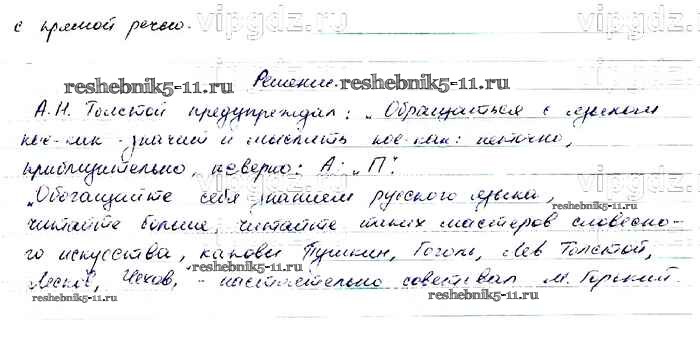 vipgdz.ru vipgdz.ru
с прямой речью.
Решение.
reshebnik5-11.ru reshebnik5-11.ru
А.Н. Толстой предупреждал: „Обращаться с языком
кое-как - значит и мыслить кое-как: неточно,
приблизительно, неверно: А: „П".
vipgdz.ru vipgdz.ru
„Обогащайте себя знанием русского языка,
reshebnik5-11.ru
читайте больше, читайте таких мастеров словесно-
го искусства, каковы Пушкин, Гоголь, Лев Толстой,
Лесков, Чехов, - настоятельно советовал М. Горький.
reshebnik5-11.ru reshebnik5-11.ru